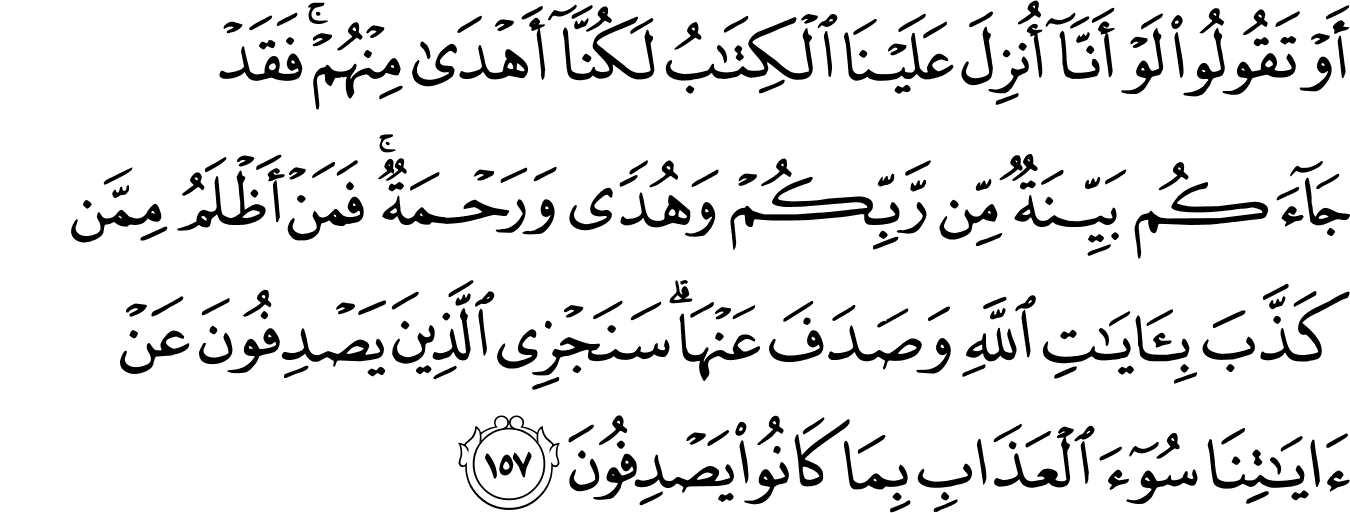 أَوْ تَقُولُوا۟ لَوْ أَنَّآ أُنزِلَ عَلَيْنَا ٱلْكِتَـٰبُ لَكُنَّآ أَهْدَىٰ مِنْهُمْ ۚ فَقَدْ
جَآءَكُم بَيِّنَةٌ مِّن رَّبِّكُمْ وَهُدًى وَرَحْمَةٌ ۚ فَمَنْ أَظْلَمُ مِمَّن
كَذَّبَ بِـَٔايَـٰتِ ٱللَّهِ وَصَدَفَ عَنْهَا ۗ سَنَجْزِى ٱلَّذِينَ يَصْدِفُونَ عَنْ
ءَايَـٰتِنَا سُوٓءَ ٱلْعَذَابِ بِمَا كَانُوا۟ يَصْدِفُونَ ١٥٧